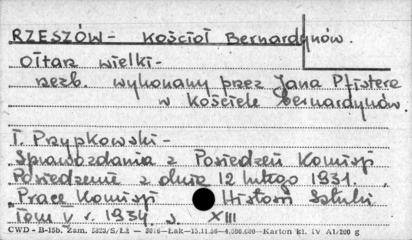 RZESZÓW - Kościoł Bernardynów.
Ołtarz wielki -
rezb. wykonany przez Jana Pfistera
w kościele Bernardynów.
T. Przypkowski -
Sprawozdania z Posiedzeń Komisji
Posiedzenie z dnia 12 lutego 1931.
Prace Komisji Historii Sztuki
Tom V r. 1934. s. XIII
CWD - B-15b. Zam. 5823/S/Łż — 3016 — Łak — 15.11.56 — 4.000.000 — Karton kl. IV A1/200 g